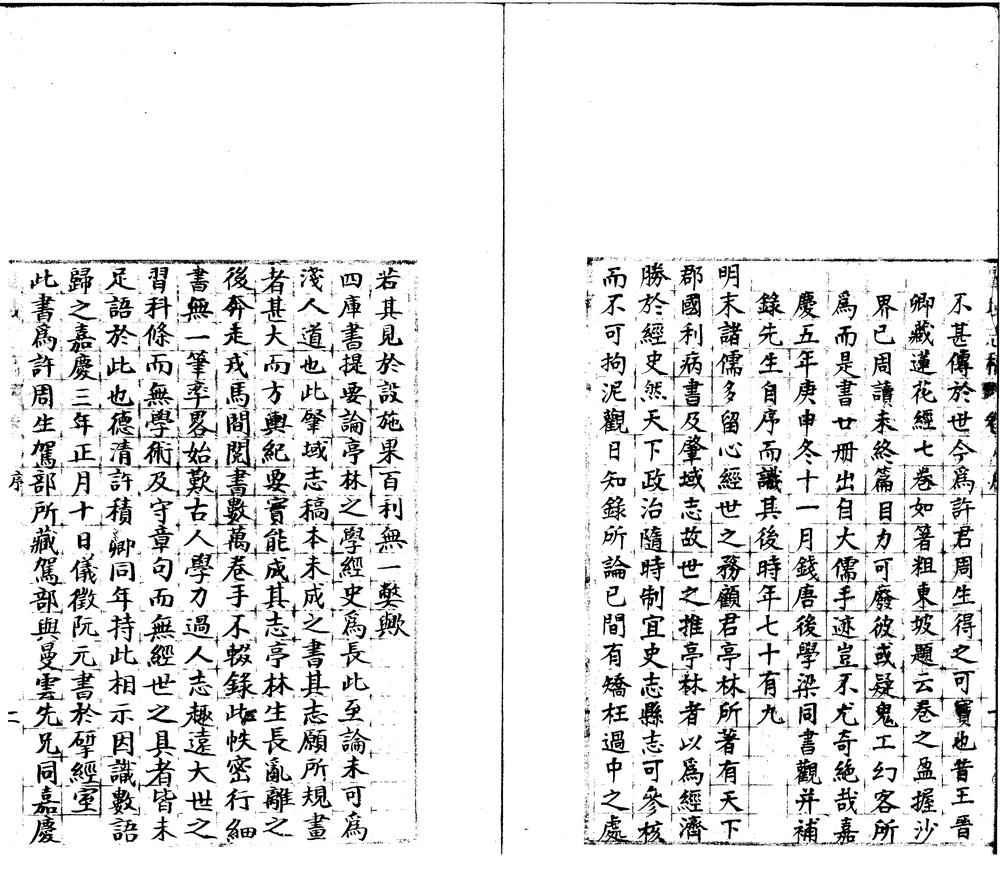 不甚傳於世今爲許君周生得之可寶也昔王晉
卿藏蓮花經七卷如箸粗東坡題云卷之盈握沙
界已周讀未終篇目力可廢彼或疑鬼工幻客所
爲而是書廿册出自大儒手迹豈不尤奇絶哉嘉
慶五年庚申冬十一月錢唐後學梁同書觀并補
錄先生自序而識其後時年七十有九
明末諸儒多留心經世之務顧君亭林所著有天下
郡國利病書及肇域志故世之推亭林者以爲經濟
勝於經史然天下政治隨時制宜史志縣志可參核
而不可拘泥觀日知錄所論已間有矯枉過中之處
若其見於設施果百利無一獘歟
四庫書提要論亭林之學經史爲長此至論未可爲
淺人道也此肇域志稿本未成之書其志願所規畫
者甚大而方輿紀要實能成其志亭林生長亂離之
後奔走戎馬間閱書數萬卷手不輟錄此帙密行細
書無一筆率畧始歎古人學力過人志趣遠大世之
習科條而無學術及守章句而無經世之具者皆未
足語於此也德清許積卿同年持此相示因識數語
歸之嘉慶三年正月十日儀徵阮元書於揅經室
此書爲許周生駕部所藏駕部與曼雲先兄同嘉慶
序
二